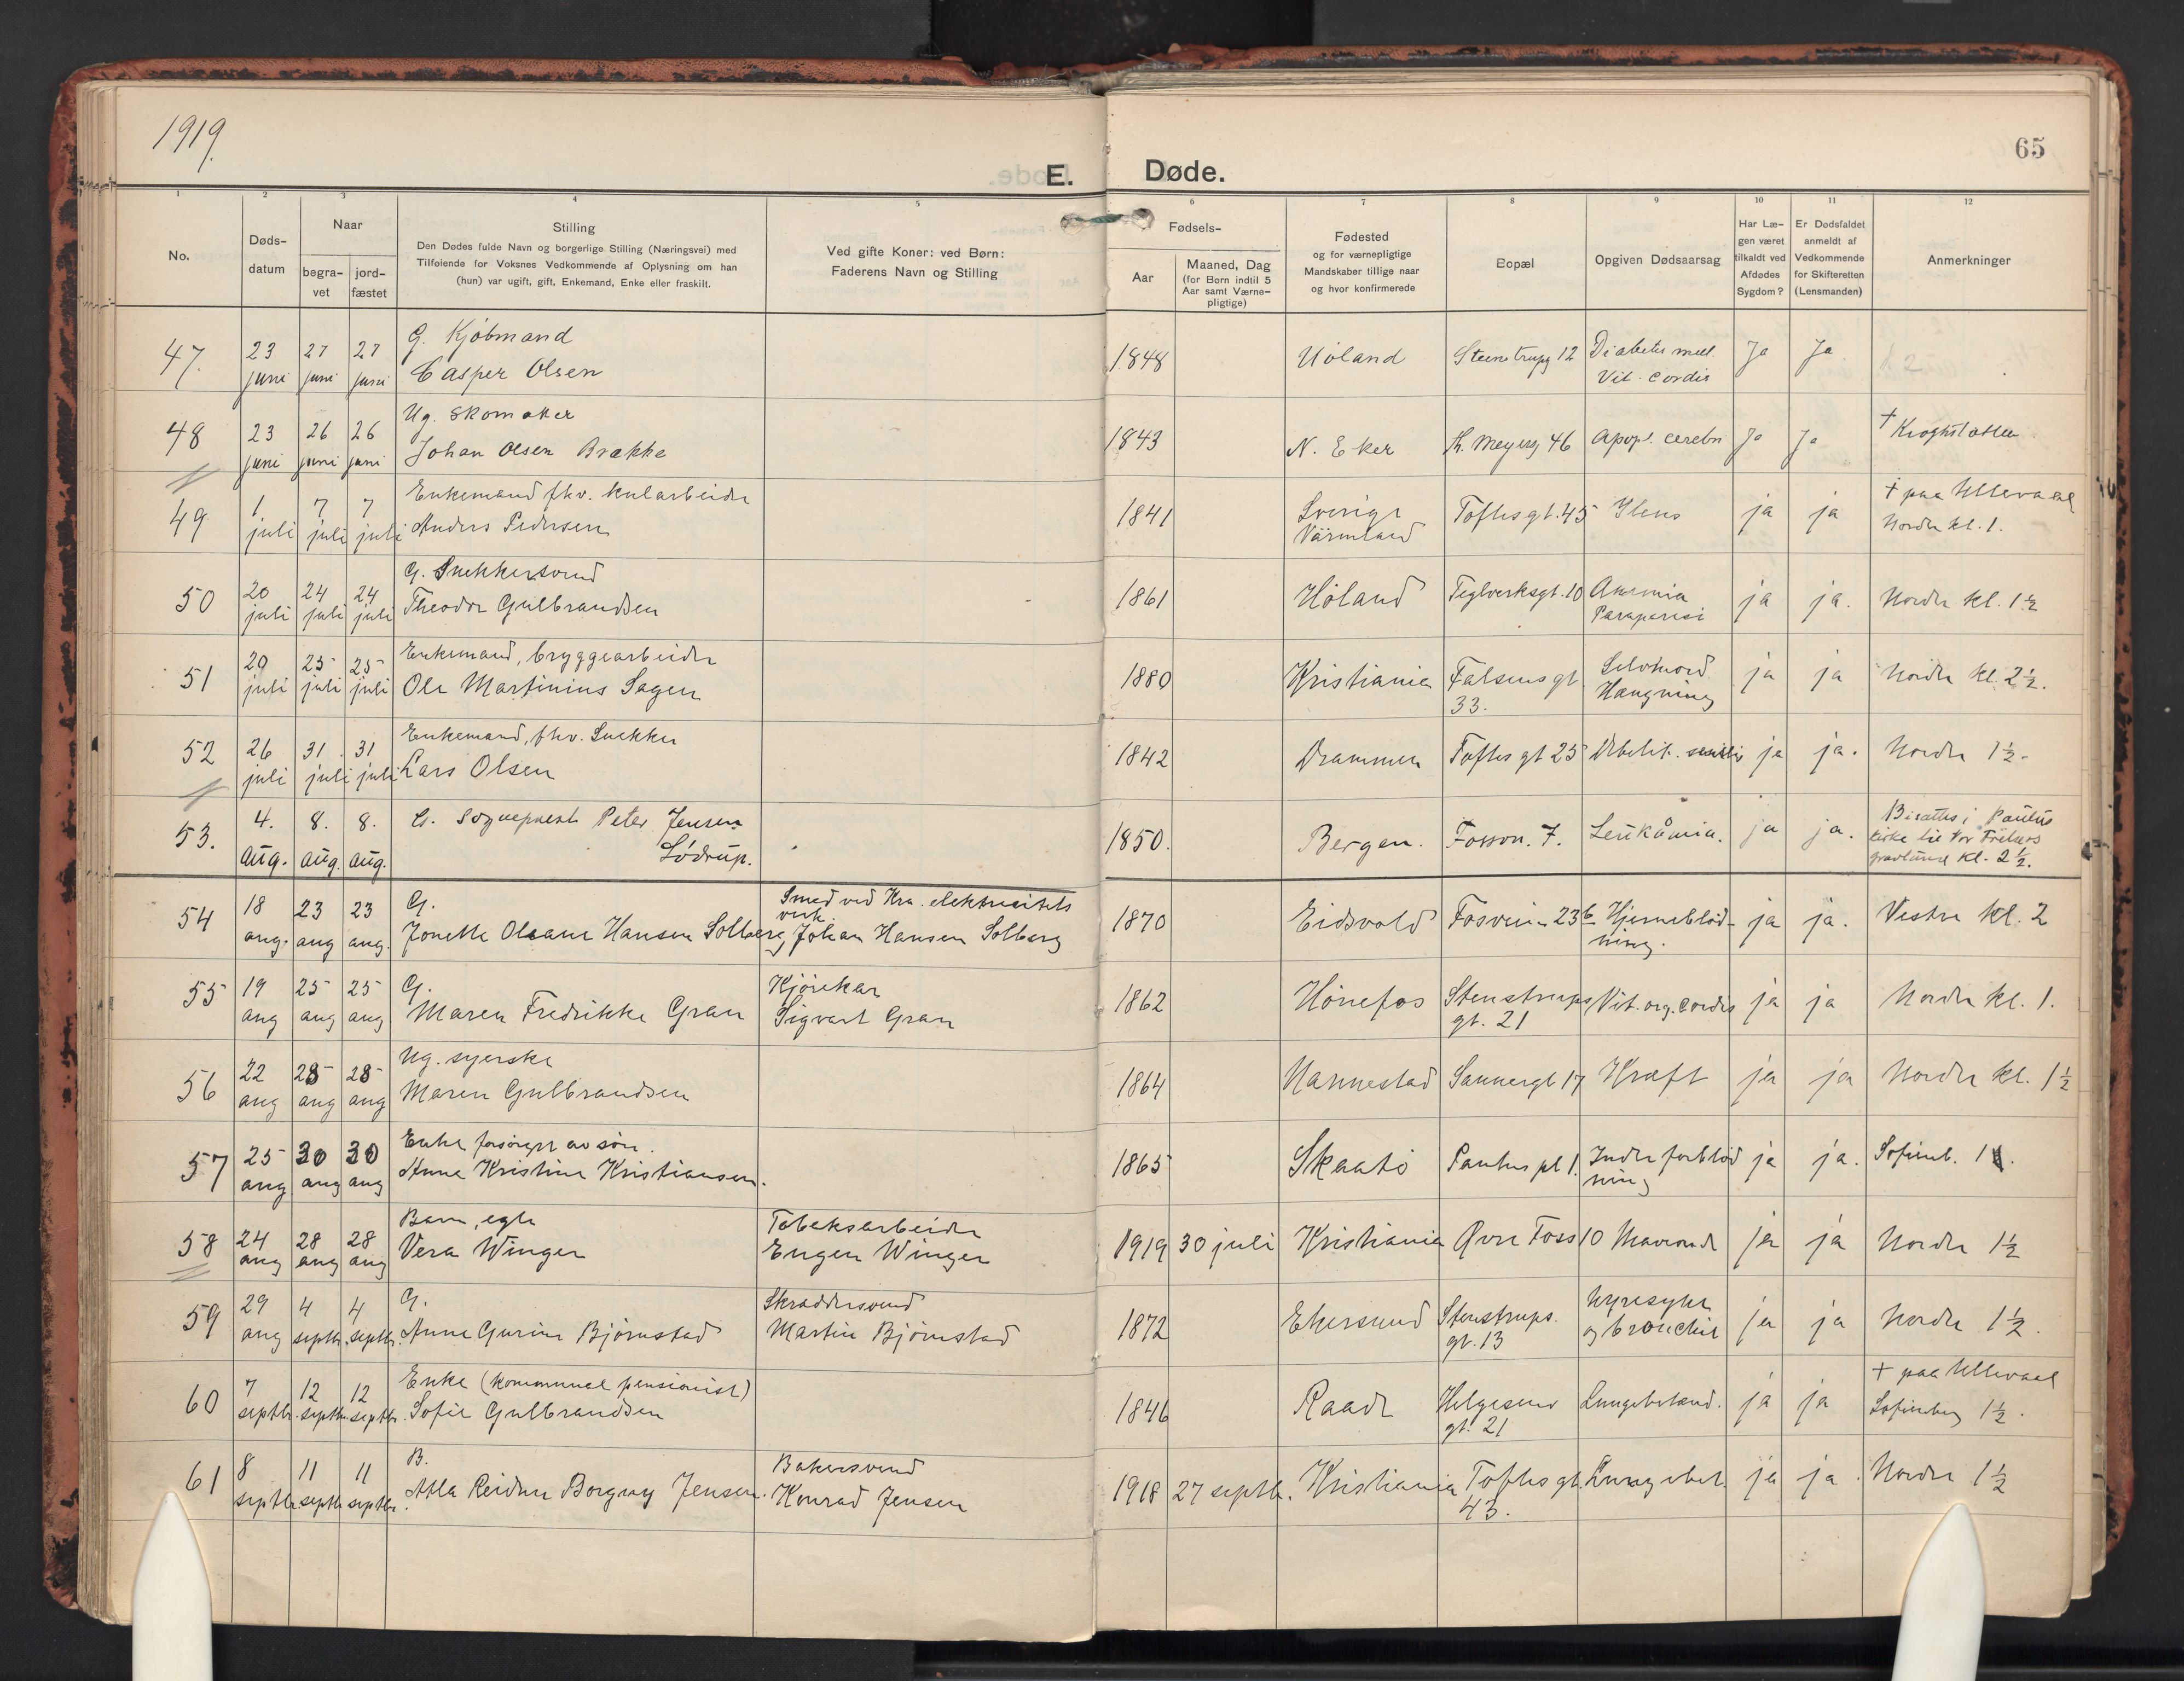 1919.
65
E. Døde.
1 2 3 4 5 6 7 8 9 10 11 12
No.
Døds-
datum
Naar
begra-
vet
jord-
fæstet
Stilling
Den Dødes fulde Navn og borgerlige Stilling (Næringsvei) med
Tilføiende for Voksnes Vedkommende af Oplysning om han
(hun) var ugift, gift, Enkemand, Enke eller fraskilt.
Ved gifte Koner: ved Børn:
Faderens Navn og Stilling
Fødsels-
Aar
Maaned, Dag
(for Børn indtil 5
Aar samt Værne-
pligtige)
Fødested
og for værnepligtige
Mandskaber tillige naar
og hvor konfirmerede
Bopæl
Opgiven Dødsaarsag
Har Læ-
gen været
tilkaldt ved
Afdødes
Sygdom?
Er Dødsfaldet
anmeldt af
Vedkommende
for Skifteretten
(Lensmanden)
Anmerkninger
47. 23 juni 27 juni 27 juni
G. Kjøbmand
Casper Olsen
1848 Høland Steenstrupg 12 Diabetes mell.
Vit. cordis
Ja Ja
48 23 juni 26 juni 26 juni
Ug. Skomaker
Johan Olsen Brække
1843 N. Eker Th. Meyersg 46 Apopl. cerebri Ja Ja
49 1. juli 7 juli 7 juli
Enkemand fhv. kularbeider
Anders Pedersen
1841 Sverige
Värmland
Toftesgt. 45 Ileus ja ja
+ paa Ullevaal
Nordre kl. 1.
50 20 juli 24 juli 24 juli
G. Snekkersvend
Theodor Gulbrandsen
1861 Høland Teglverksgt. 10
ja ja. Nordre kl. 1½
51 20 juli 25 juli 25 juli
Enkemand, bryggearbeider
Ole Martinius Sagen
1880 Kristiania Falsensgt
33.
Selvmord.
Hængning
ja ja Nordre kl. 2½.
52 26 juli 31 juli 31 juli
Enkemand, fhv. Snekker
Lars Olsen
1842 Drammen Toftesgt 25 Debilit. senilis ja ja. Nordre 1½.
53. 4. aug. 8. aug. 8. aug.
G. Sogneprest Peter Jensen
Lødrup.
1850. Bergen. Fossv. 7. Leukämia. ja ja.
Bisattes i Paulus
kirke til Vor Frelsers
gravlund kl. 2½.
54 18 aug. 23 aug 23 aug.
G.
Jonette Oleane Hansen Solberg
Smed ved Kra. elektricitets
verk.
Johan Hansen Solberg
1870 Eidsvold Fosvein 23b Hjerneblød-
ning.
ja ja. Vestre kl. 2
55 19 aug 25 aug 25 aug
G.
Maren Fredrikke Gran
Kjørekar
Sigvart Gran
1862 Hønefos Stenstrups
gt. 21
Vit. org. cordis ja ja Nordre kl. 1.
56 22 aug 28 aug 28 aug
Ug. syerske
Maren Gulbrandsen
1864 Nannestad Sannergt 17 Kræft ja ja Nordre kl. 1½
57 25 aug 30 aug 30 aug
Enke forsørget av søn.
Anne Kristine Kristiansen.
1865 Skaatø Paulus pl 1. Indre forblød
ning
ja ja. Sofienb. 1.
58 24 aug 28 aug 28 aug
Barn, egte
Vera Winger
Tobaksarbeider
Eugen Winger
1919 30 juli Kristiania Øvre Foss 10 ja ja Nordre 1½
59 29 aug 4 septbr. 4 septbr.
G.
Anne Gurine Bjørnstad
Skræddersvend
Martin Bjørnstad
1872 Ekersund Stenstrups.
gt. 13
Nyresyke
og bronchit
ja ja Nordre 1½.
60 7 septbr. 12 septbr. 12 septbr.
Enke (kommunal pensionist)
Sofie Gulbrandsen
1846 Raade Helgesens
gt. 21
Lungebetænd. ja ja
+ paa Ullevaal
Sofienberg 1½.
61 8 septbr. 11 septbr. 11 septbr.
B.
Atla Reidun Borgny Jensen.
Bakersvend
Konrad Jensen
1918 27 septbr. Kristiania Toftesgt.
43.
Lungebet. ja ja. Nordre 1½